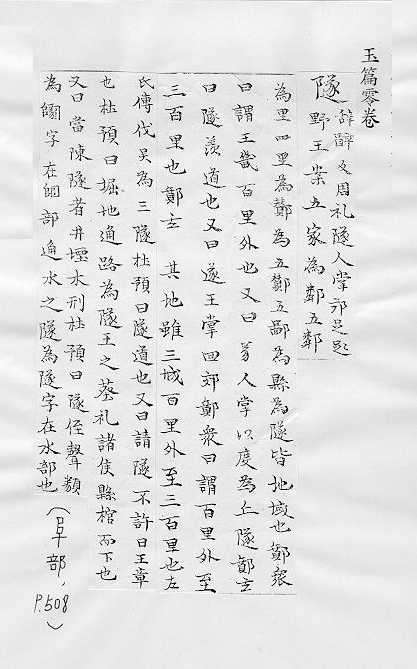 玉篇零卷
隧 辞醉 反周礼隧人掌
野王案五家為鄰五鄰
為里四里為酇為五酇五鄙為縣為隧皆地域也鄭衆
曰謂王畿百里外也又曰 人掌以度為丘隧鄭玄
曰隧羨道也又曰遂王掌四郊鄭衆曰謂百里外至
三百里也鄭玄 其地雖三城百里外至三百里也左
氏傳伐吴為三隧杜預曰隧道也又曰請隧不許曰王章
也杜預曰掘地通路為隧王之葬礼諸侯縣棺而下也
又曰當陳隧者井堙木刑杜預曰隧徑聲類
為 字在 部通水之隧為隧字在水部也
(阜部, P.508)